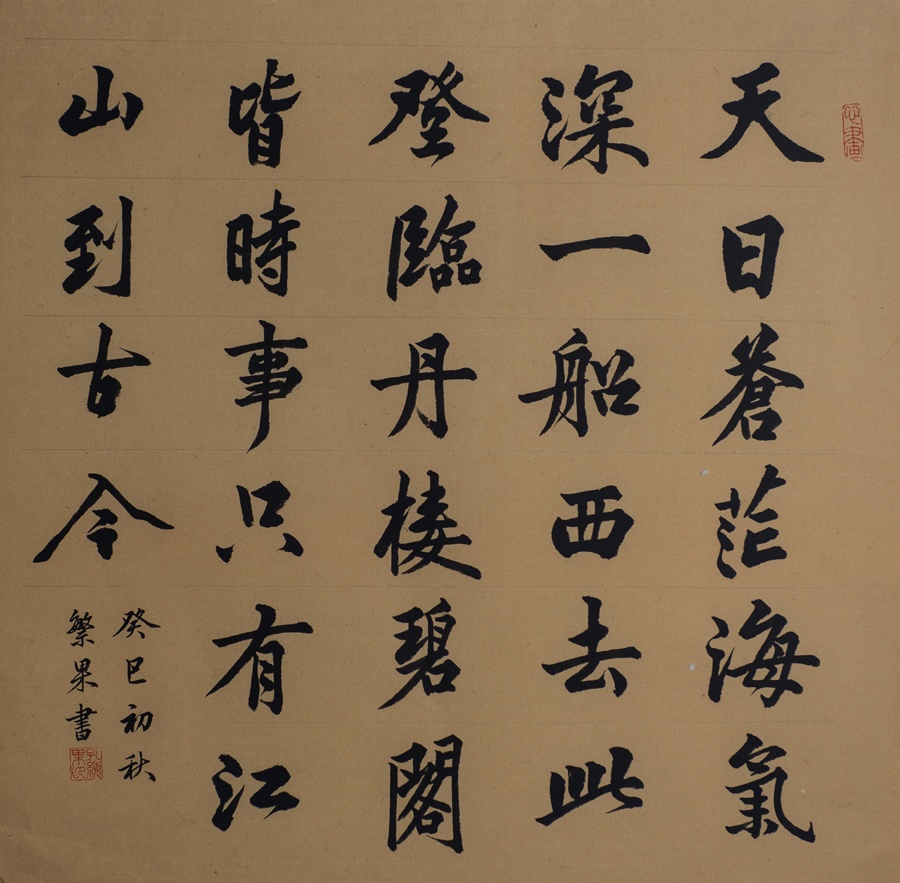 天日蒼茫海氣
深一船西去此
登臨丹棲碧閣
皆時事只有江
山到古今
癸巳初秋
繁果書